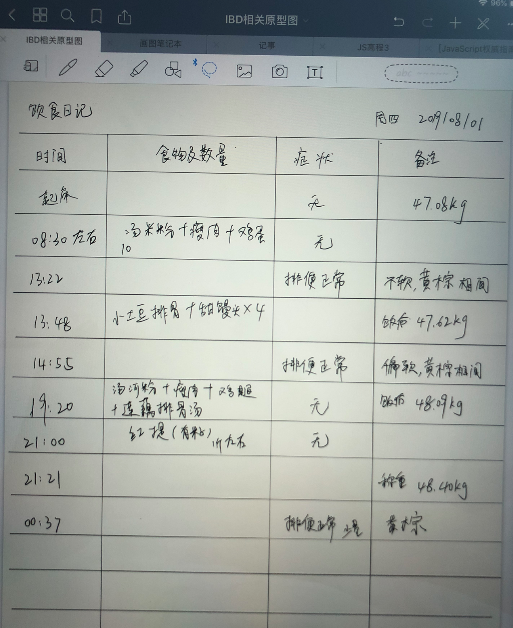 96%
IBD相关原型图
IBD相关原型图
画图笔记本
记事
JS高程3
饮食日记
周四 2019/08/01
时间 食物及数量 症状 备注
起床 无 47.08kg
08:30左右 汤米粉+瘦肉+鸡蛋 无
10
13:22 排便正常 不软,黄棕相间
13:48 小土豆排骨+甜馒头×4 饭后 47.62kg
14:55 排便正常 偏软,黄棕相间
19:20 汤河粉+瘦肉+鸡腿 无 饭后 48.09kg
+莲藕排骨汤
21:00 红提(有籽) 左右 无
21:21 称重 48.40kg
00:37 排便正常 少量 黄棕